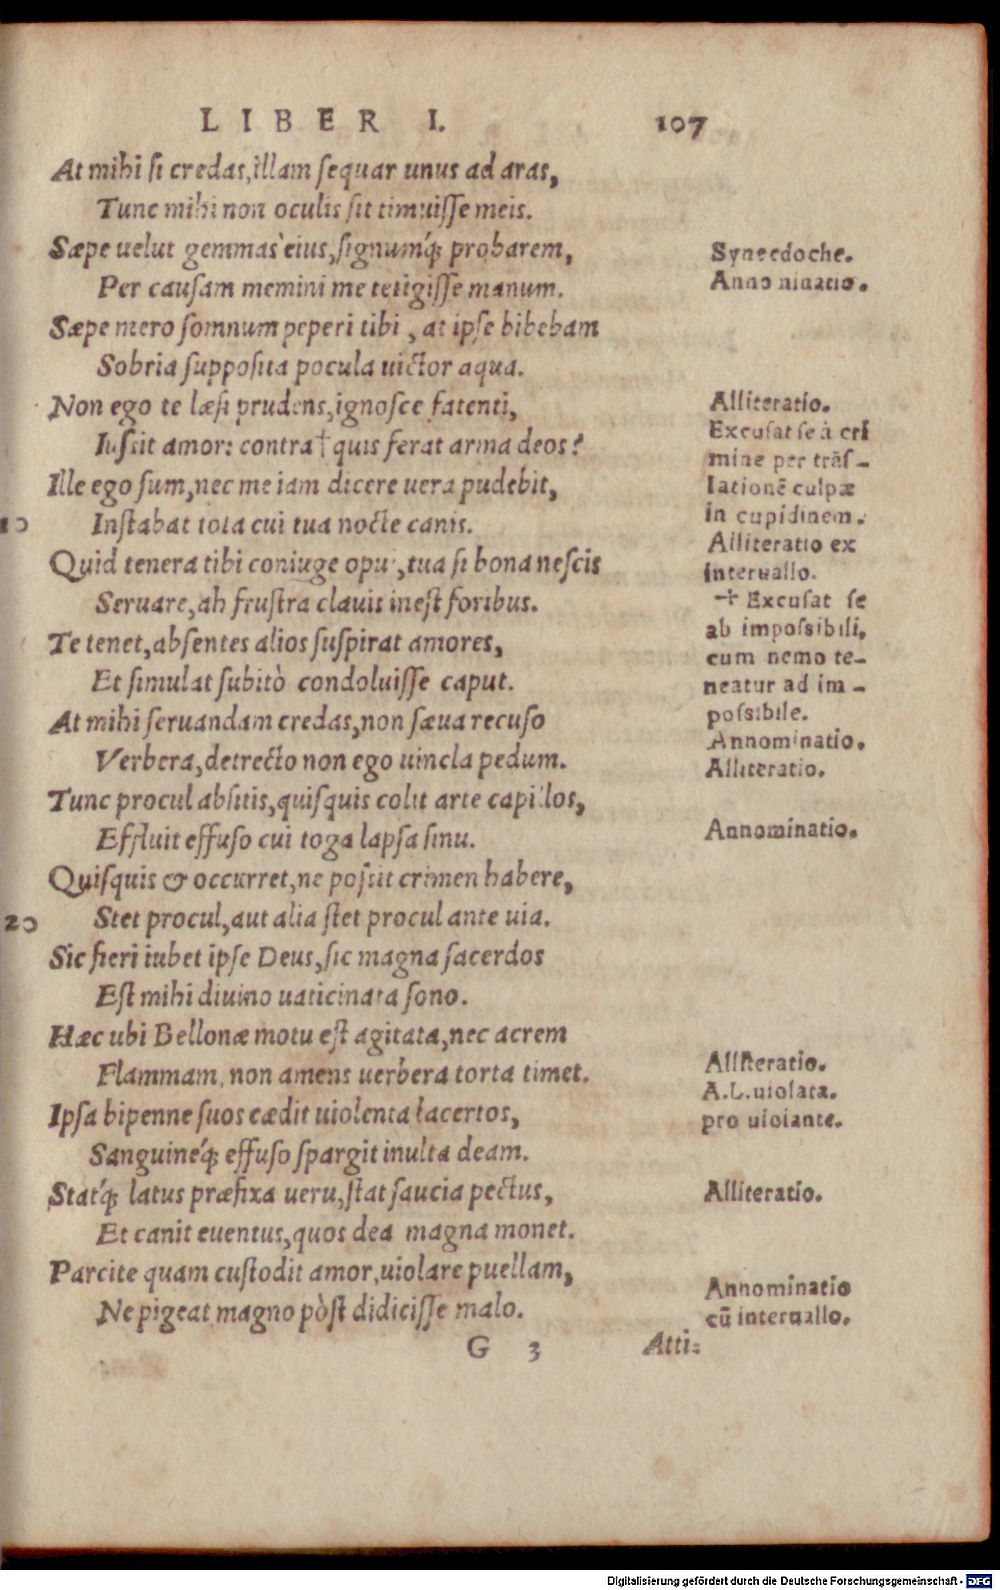 LIBER I. 107
At mihi si credas, illam sequar unus ad aras,
Tunc mihi non oculis sit timuisse meis.
Sæpe uelut gemmas eius, signumq́; probarem,
Per causam memini me tetigisse manum.
Sæpe mero somnum peperi tibi, at ipse bibebam
Sobria supposita pocula uictor aqua.
Non ego te læsi prudens, ignosce fatenti,
Iussit amor: contra † quis ferat arma deos?
Ille ego sum, nec me iam dicere uera pudebit,
10 Instabat tota cui tua nocte canis.
Quid tenera tibi coniuge opus, tua si bona nescis
Seruare, ah frustra clauis inest foribus.
Te tenet, absentes alios suspirat amores,
Et simulat subitò condoluisse caput.
At mihi seruandam credas, non sæua recuso
Verbera, detrecto non ego uincla pedum.
Tunc procul absitis, quisquis colit arte capillos,
Effluit effuso cui toga lapsa sinu.
Quisquis & occurret, ne possit crimen habere,
20 Stet procul, aut alia stet procul ante uia.
Sic fieri iubet ipse Deus, sic magna sacerdos
Est mihi diuino uaticinata sono.
Hæc ubi Bellonæ motu est agitata, nec acrem
Flammam, non amens uerbera torta timet.
Ipsa bipenne suos cædit uiolenta lacertos,
Sanguineq́; effuso spargit inulta deam.
Statq́; latus præfixa ueru, stat saucia pectus,
Et canit euentus, quos dea magna monet.
Parcite quam custodit amor, uiolare puellam,
Ne pigeat magno pòst didicisse malo.
Synecdoche.
Annominatio.
Alliteratio.
Excusat se à cri
mine per trãs-
lationẽ culpæ
in cupidinem.
Alliteratio ex
interuallo.
† Excusat se
ab impossibili,
cum nemo te-
neatur ad im-
possibile.
Annominatio.
Alliteratio.
Annominatio.
Alliteratio.
A.L. uiolata.
pro uiolante.
Alliteratio.
Annominatio
cũ interuallo.
G 3 Atti-
Digitalisierung gefördert durch die Deutsche Forschungsgemeinschaft - DFG